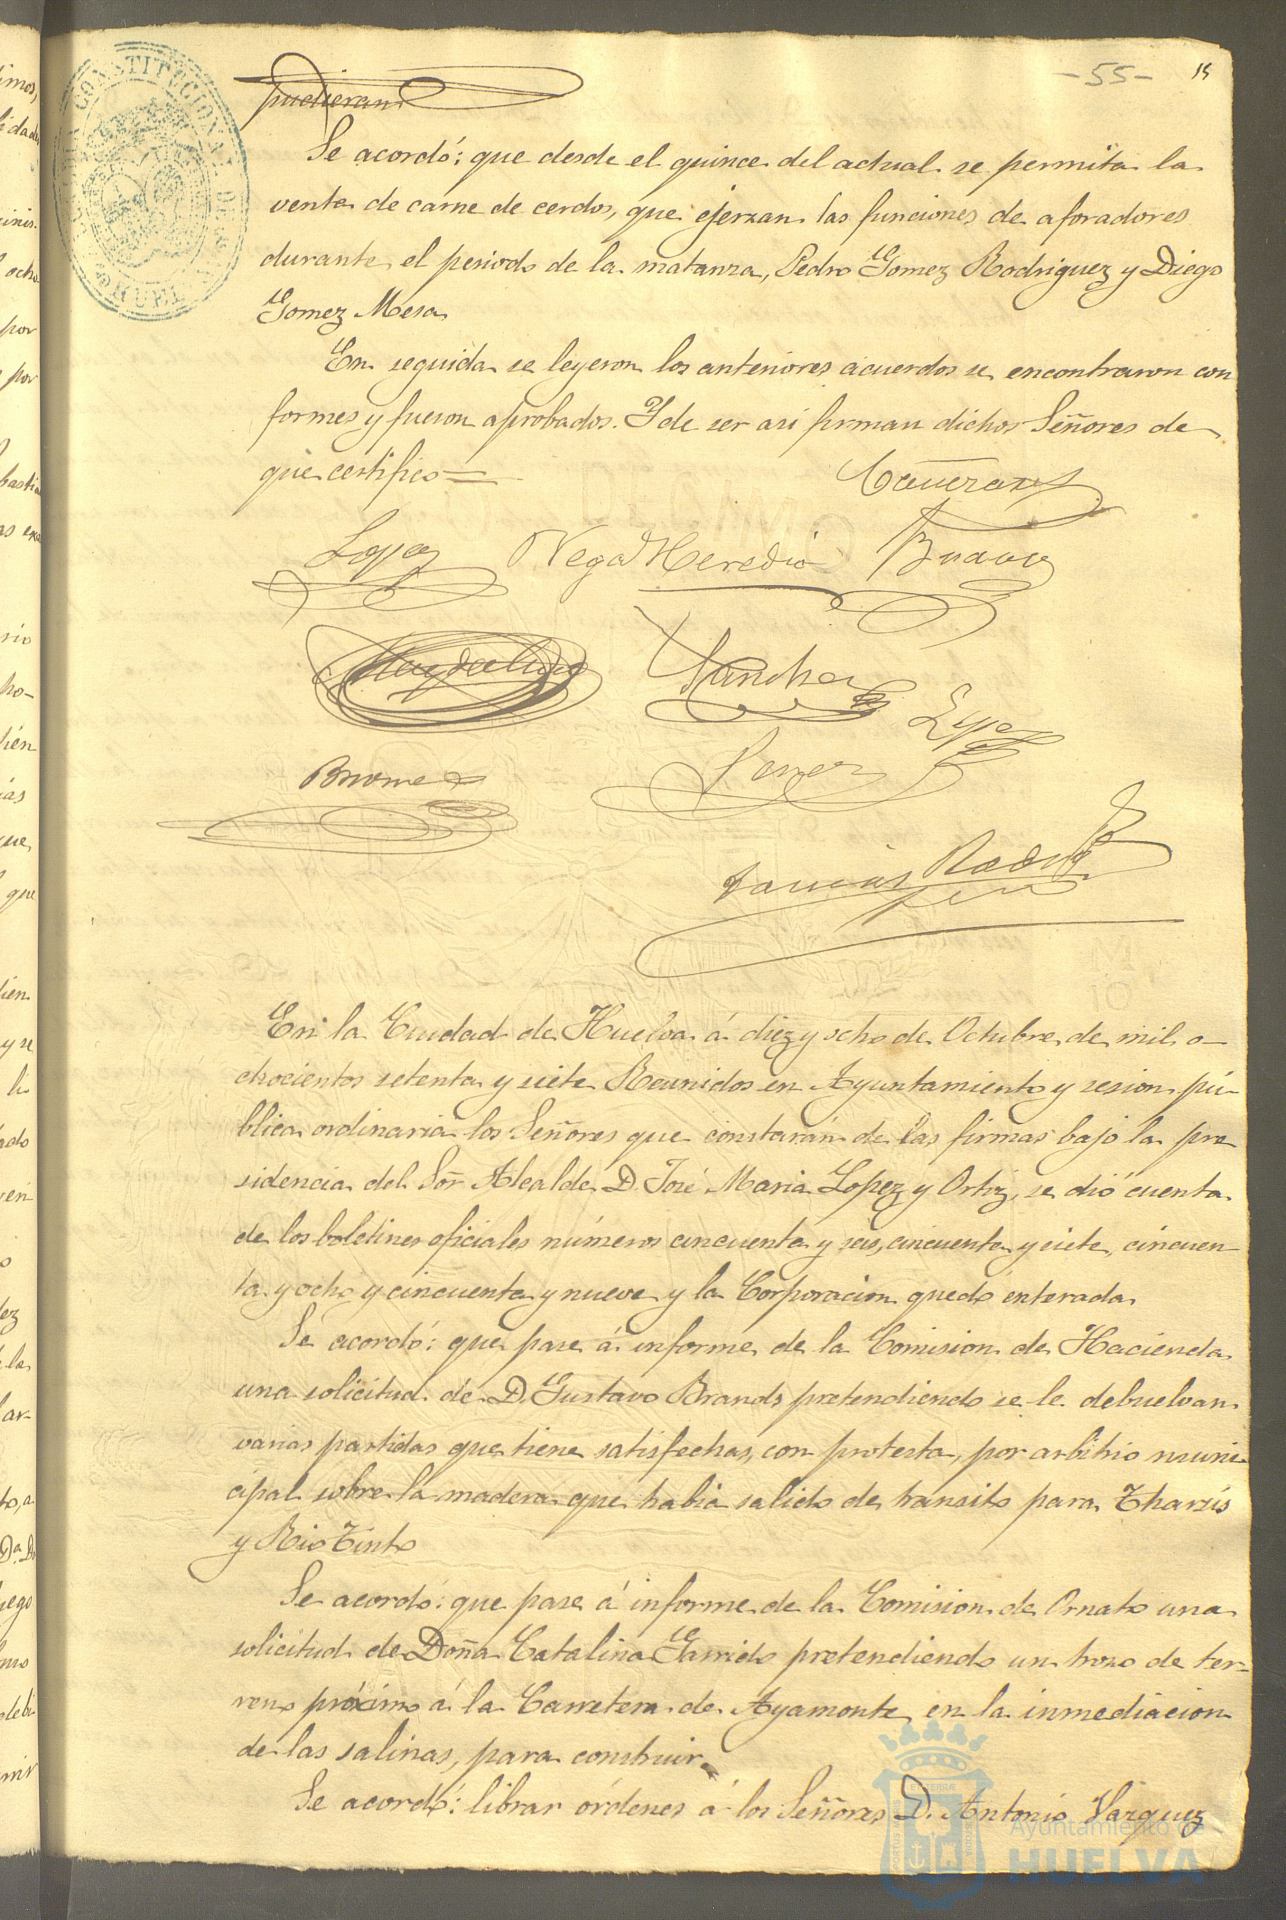 -55- 15
pudieran
Se acordó: que desde el quince del actual se permita la
venta de carne de cerdos, que ejerzan las funciones de aforadores
durante el periodo de la matanza, Pedro Gomez Rodriguez y Diego
Gomez Mesa
En seguida se leyeron los anteriores acuerdos se encontraron con
formes y fueron aprobados. Y de ser asi firman dichos Señores de
que certifico=
Lopez Vega Heredia Bravo
Sanchez
Lopez
En la Ciudad de Huelva á diez y ocho de Octubre de mil o-
chocientos setenta y siete Reunidos en Ayuntamiento y sesion pú-
blica ordinaria los Señores que constarán de las firmas bajo la pre
sidencia del Sor Alcalde D. José Maria Lopez y Ortiz, se dió cuenta
de los boletines oficiales números cincuenta y seis, cincuenta y siete, cincuen
ta y ocho y cincuenta y nueve y la Corporacion quedó enterada
Se acordó: que pase á informe de la Comision de Hacienda
una solicitud de D. Gustavo Brands pretendiendo se le debuelvan
varias partidas que tiene satisfechas, con protesta, por arbitrio muni
cipal sobre la madera que habia salido de transito para Tharsis
y Rio Tinto
Se acordó: que pase á informe de la Comision de Ornato una
solicitud de Doña Catalina Garrido pretendiendo un trozo de ter-
reno próximo á la Carretera de Ayamonte en la inmediacion
de las salinas, para construir.
Se acordó: librar órdenes á los Señores D. Antonio Vazquez
Ayuntamiento de
HUELVA